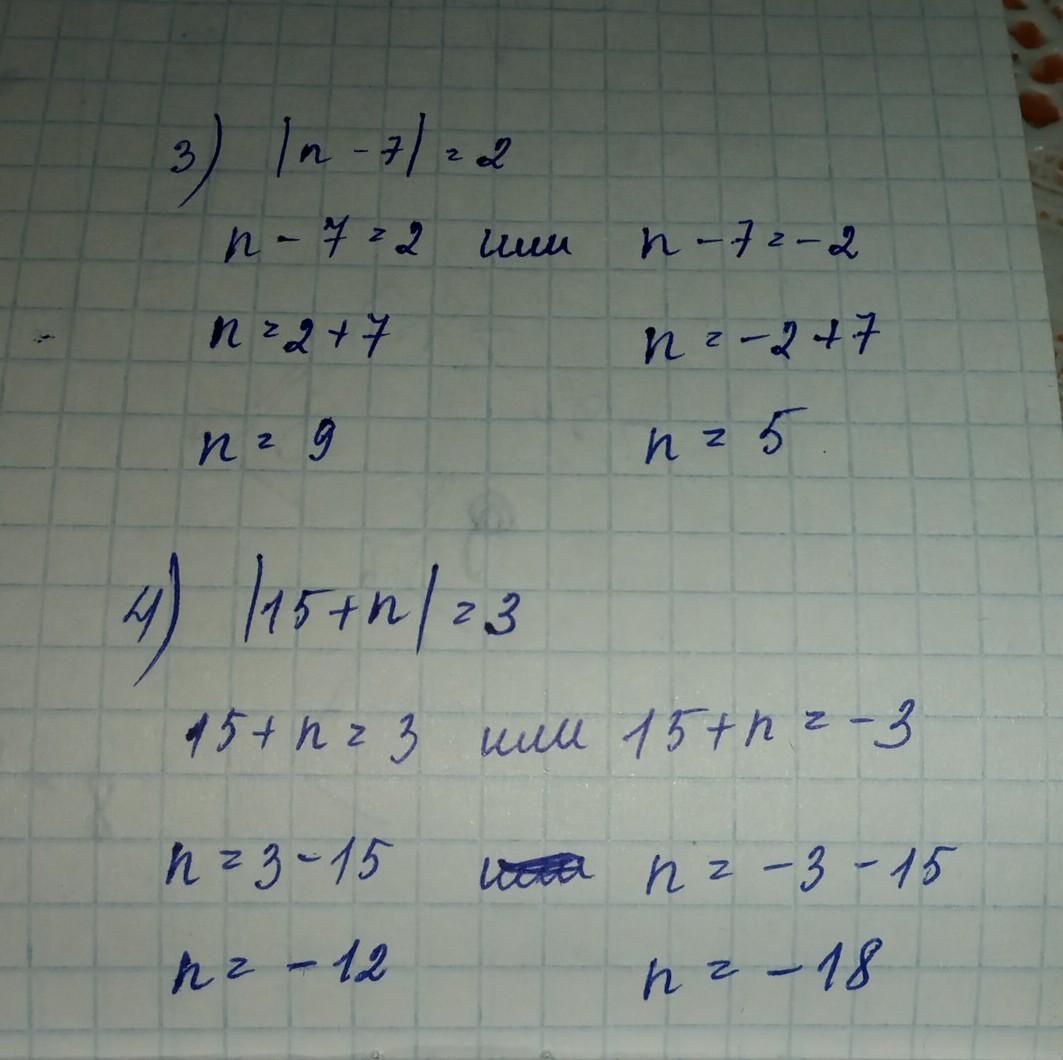 3) |n - 7| = 2
n - 7 = 2 или n - 7 = -2
n = 2 + 7 n = -2 + 7
n = 9 n = 5
4) |15 + n| = 3
15 + n = 3 или 15 + n = -3
n = 3 - 15 n = -3 - 15
n = -12 n = -18